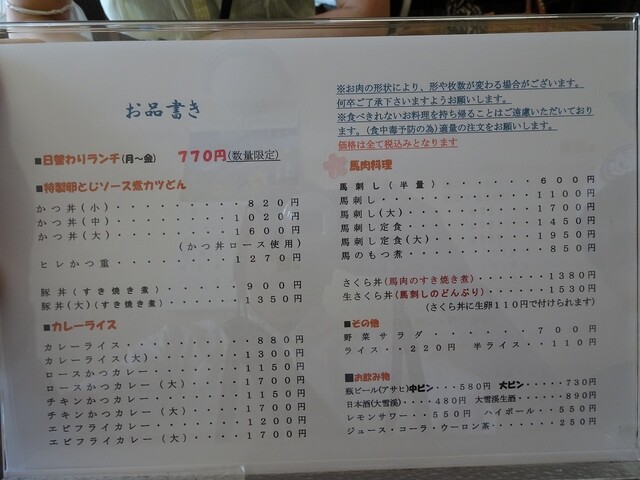 お品書き
■日替わりランチ(月～金) 770円(数量限定)
■特製卵とじソース煮カツどん
かつ丼(小)・・・・・・・・・・820円
かつ丼(中)・・・・・・・・・1020円
かつ丼(大)・・・・・・・・・1600円
(かつ丼ロース使用)
ヒレかつ重・・・・・・・・・1270円
豚丼(すき焼き煮)・・・・・・900円
豚丼(大)(すき焼き煮)・・・・1350円
■カレーライス
カレーライス・・・・・・・・・880円
カレーライス(大)・・・・・・1300円
ロースかつカレー・・・・・・1150円
ロースかつカレー(大)・・・・1700円
チキンかつカレー・・・・・・1150円
チキンかつカレー(大)・・・・1700円
エビフライカレー・・・・・・1200円
エビフライカレー(大)・・・・1700円
※お肉の形状により、形や枚数が変わる場合がございます。
何卒ご了承下さいますようお願いします。
※食べきれないお料理を持ち帰ることはご遠慮いただいており
ます。(食中毒予防の為)適量の注文をお願いします。
価格は全て税込みとなります
馬肉料理
馬刺し(半量)・・・・・・・600円
馬刺し・・・・・・・・・・1100円
馬刺し(大)・・・・・・・・1700円
馬刺し定食・・・・・・・・1450円
馬刺し定食(大)・・・・・・1950円
馬のもつ煮・・・・・・・・・850円
さくら丼(馬肉のすき焼き煮)・・・・・・・1380円
生さくら丼(馬刺しのどんぶり)・・・・・・1530円
(さくら丼に生卵110円で付けられます)
■その他
野菜サラダ・・・・・・・・700円
ライス・・220円 半ライス・・・110円
■お飲み物
瓶ビール(アサヒ)中ビン・・・580円 大ビン・・・・・730円
日本酒(大雪渓)・・・・480円 大雪渓生酒・・・・・890円
レモンサワー・・・550円 ハイボール・・・550円
ジュース・コーラ・ウーロン茶・・・・・・・250円